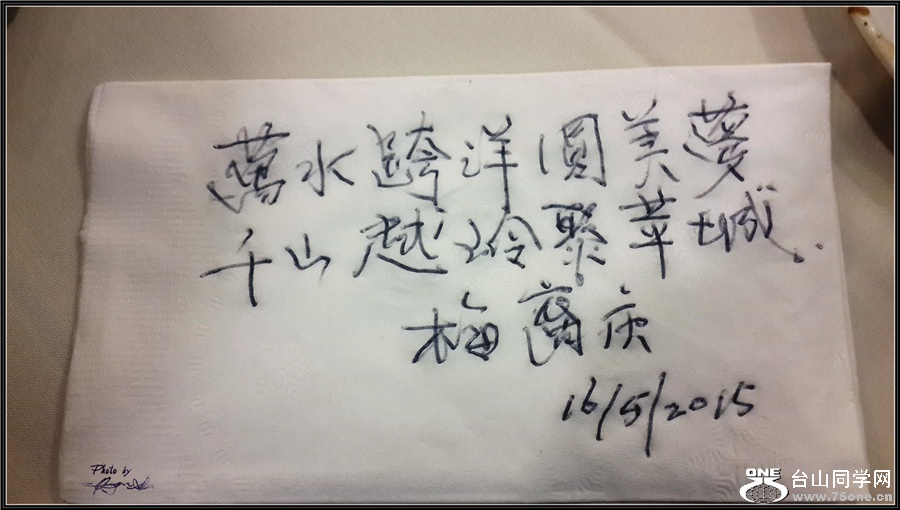 萬水跨洋圓美夢
千山越岭聚華城..
梅 庆
16/5/2015
Photo by
ONE
台山同学网
www.75one.cn